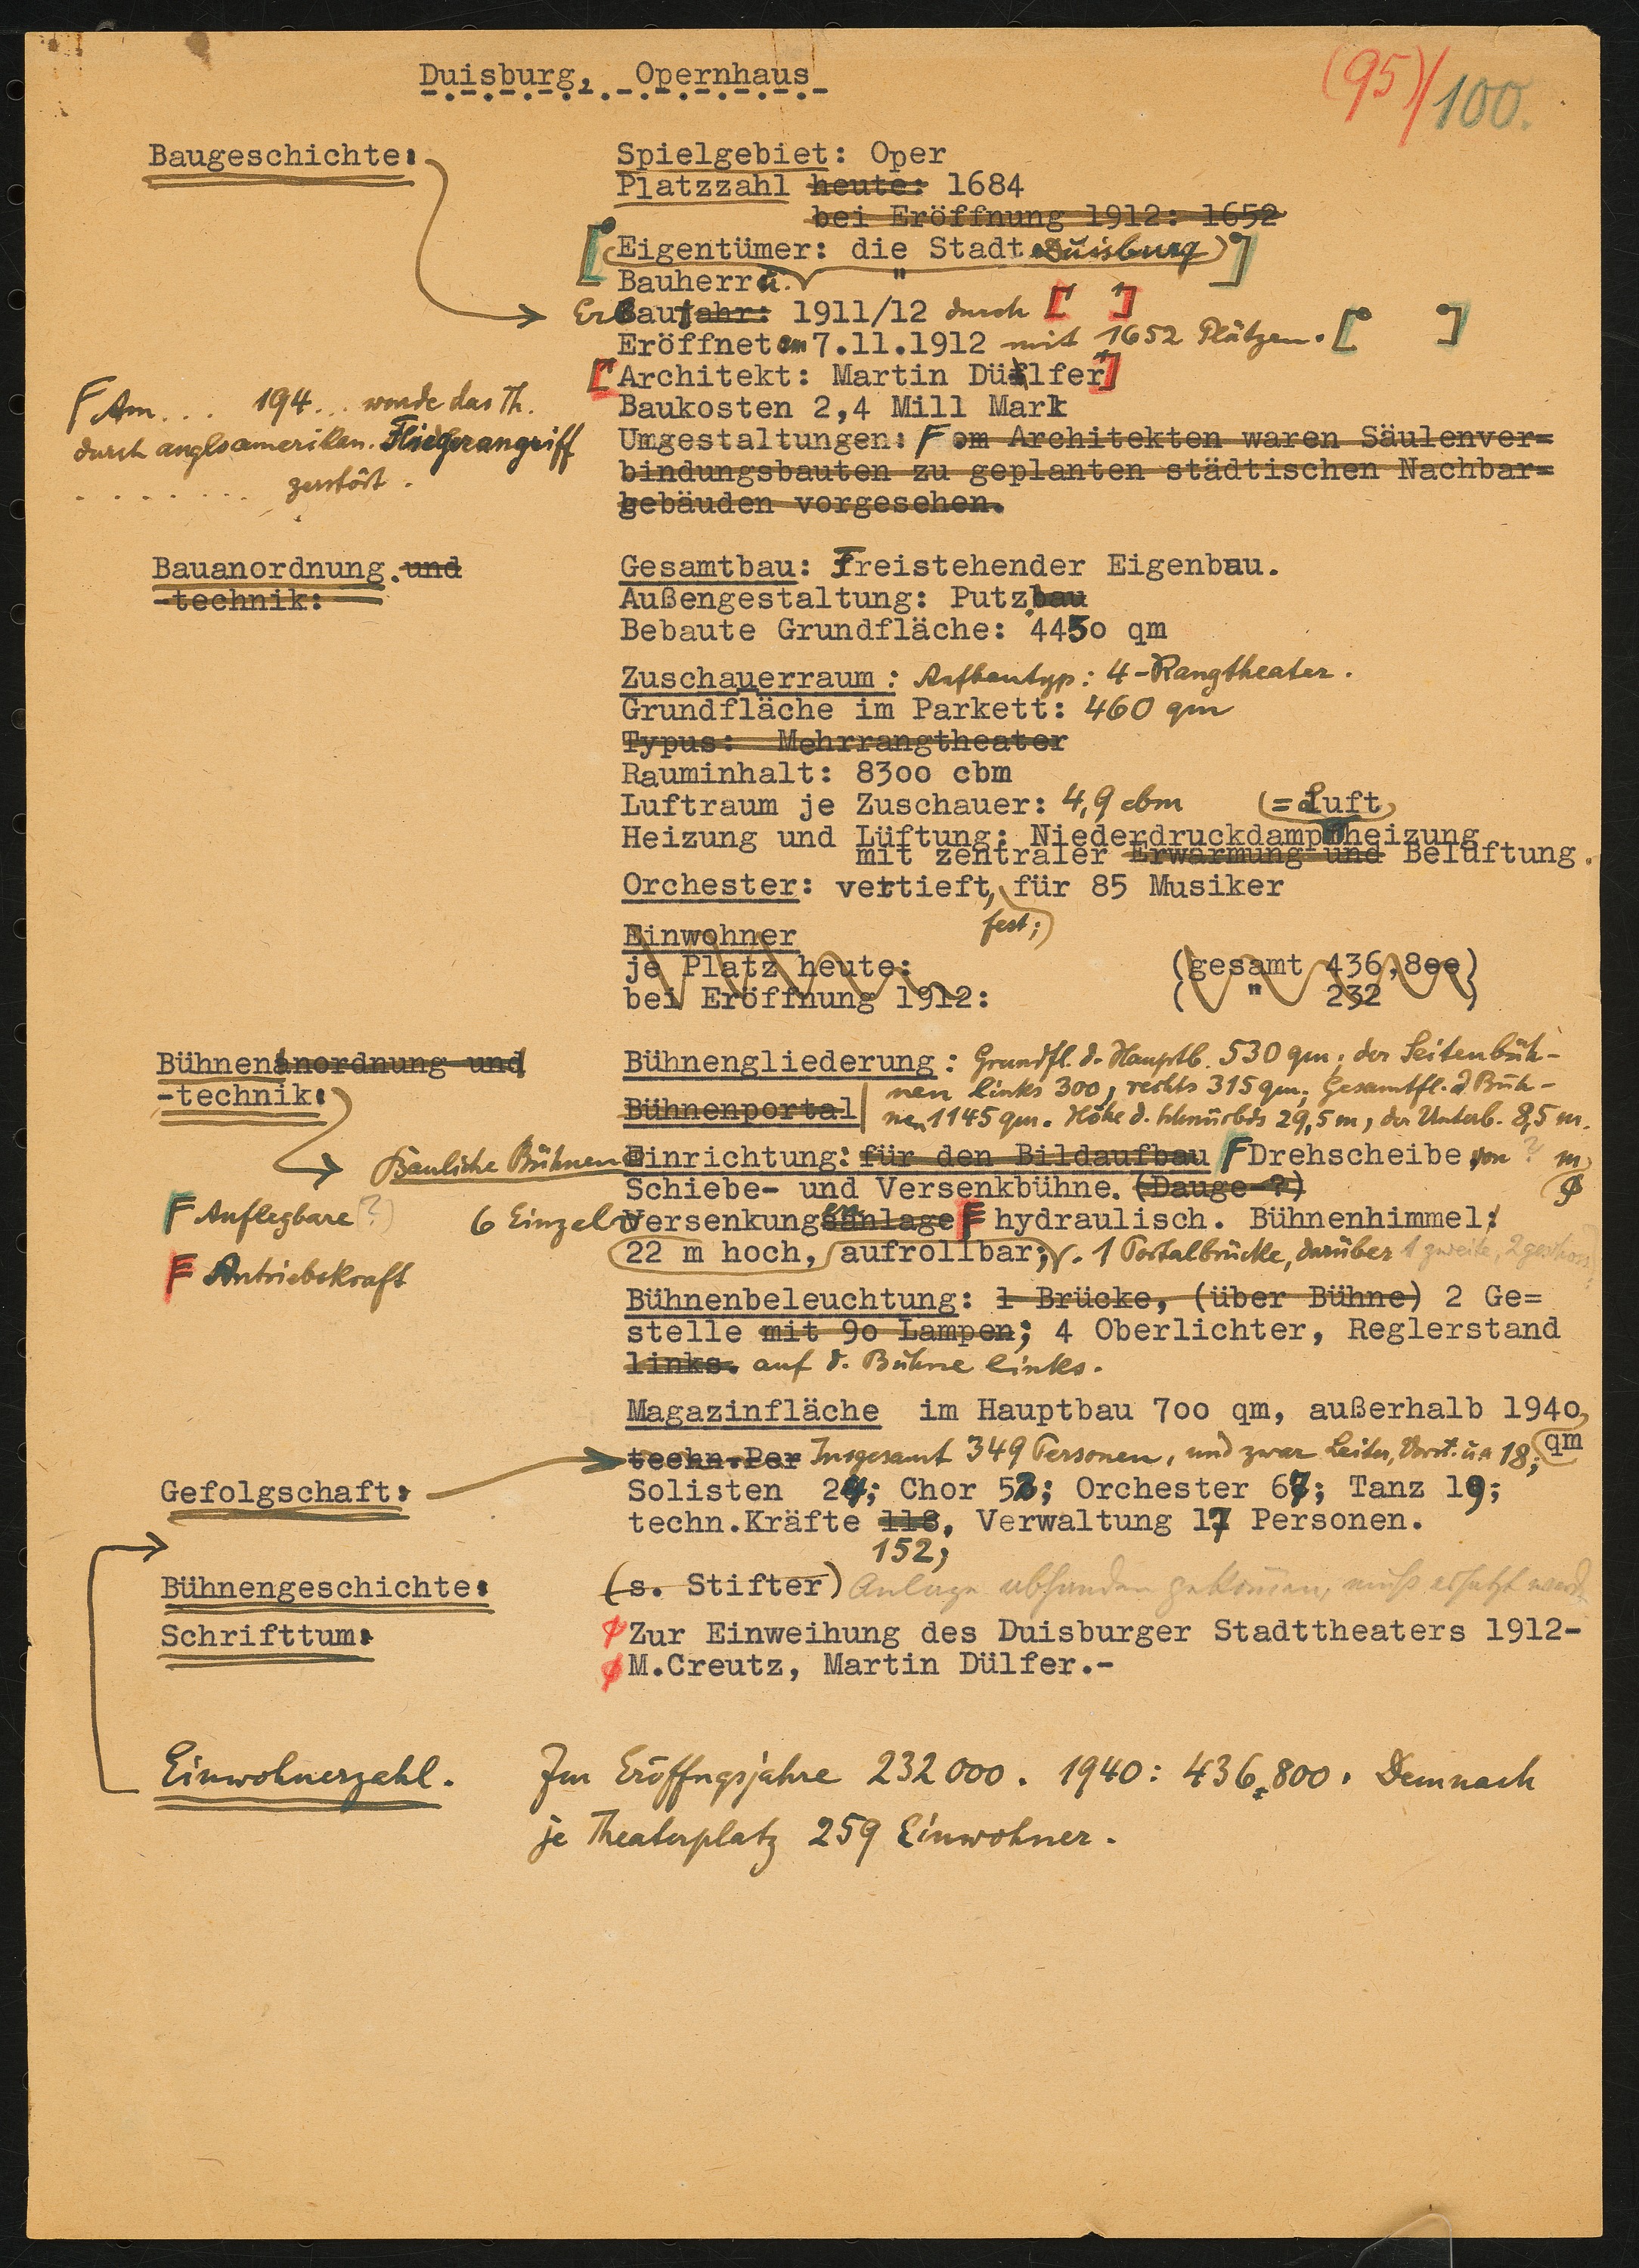 (95)/100.
Duisburg, Opernhaus
Baugeschichte:
Spielgebiet: Oper
Platzzahl heute: 1684
bei Eröffnung 1912: 1652
[(Eigentümer: die Stadt Duisburg)]
Bauherr u. "
Erbaut jahr: 1911/12 durch [" "]
Eröffnet am 7.11.1912 mit 1652 Plätzen. [ ]
["Architekt: Martin Dülfer"]
Baukosten 2,4 Mill Mark
Umgestaltungen: F om Architekten waren Säulenver=
bindungsbauten zu geplanten städtischen Nachbar=
gebäuden vorgesehen.
F Am ... 194... wurde das Th.
durch angloamerikan. Fliegerangriff
. . . . . . . . zerstört.
Bauanordnung. und
-technik:
Gesamtbau: Freistehender Eigenbau.
Außengestaltung: Putzbau
Bebaute Grundfläche: 4450 qm
Zuschauerraum: Aufbautyp: 4-Rangtheater.
Grundfläche im Parkett: 460 qm
Typus: Mehrrangtheater
Rauminhalt: 8300 cbm
Luftraum je Zuschauer: 4,9 cbm (=Luft)
Heizung und Lüftung: Niederdruckdampfheizung
mit zentraler Erwärmung und Belüftung.
Orchester: vertieft, für 85 Musiker
fest;)
Einwohner
je Platz heute: (gesamt 436,8oo)
bei Eröffnung 1912: ( " 232 )
Bühnenanordnung und
-technik:
Bühnengliederung: Grundfl. d. Hauptb. 530 qm; der Seitenbüh-
nen links 300, rechts 315 qm; Gesamtfl. d Büh-
Bühnenportal nen 1145 qm. Höhe d. Schnürbds 29,5 m, der Unterb. 8,5 m.
Bauliche Bühneneinrichtung: für den Bildaufbau F Drehscheibe von ? m
Schiebe- und Versenkbühne. (Dauge-?)
F Auflegbare (?)
6 Einzelversenkungsanlage en F hydraulisch. Bühnenhimmel:
22 m hoch, aufrollbar; . 1 Portalbrücke, darüber 1 zweite, 2geschoss.
F Antriebskraft
Bühnenbeleuchtung: 1 Brücke, (über Bühne) 2 Ge=
stelle mit 9o Lampen; 4 Oberlichter, Reglerstand
links. auf d. Bühne links.
Magazinfläche im Hauptbau 7oo qm, außerhalb 194o,
qm
techn.Per Insgesamt 349 Personen, und zwar Leiter, Vorst. u.a 18;
Gefolgschaft:
Solisten 24; Chor 52; Orchester 67; Tanz 19;
techn.Kräfte 118, Verwaltung 17 Personen.
152;
Bühnengeschichte:
(s. Stifter) Anlage abhanden gekommen, muß ersetzt werden
Schrifttum:
Zur Einweihung des Duisburger Stadttheaters 1912-
M.Creutz, Martin Dülfer.-
Einwohnerzahl. Im Eröffngsjahre 232000. 1940: 436.800. Demnach
je Theaterplatz 259 Einwohner.